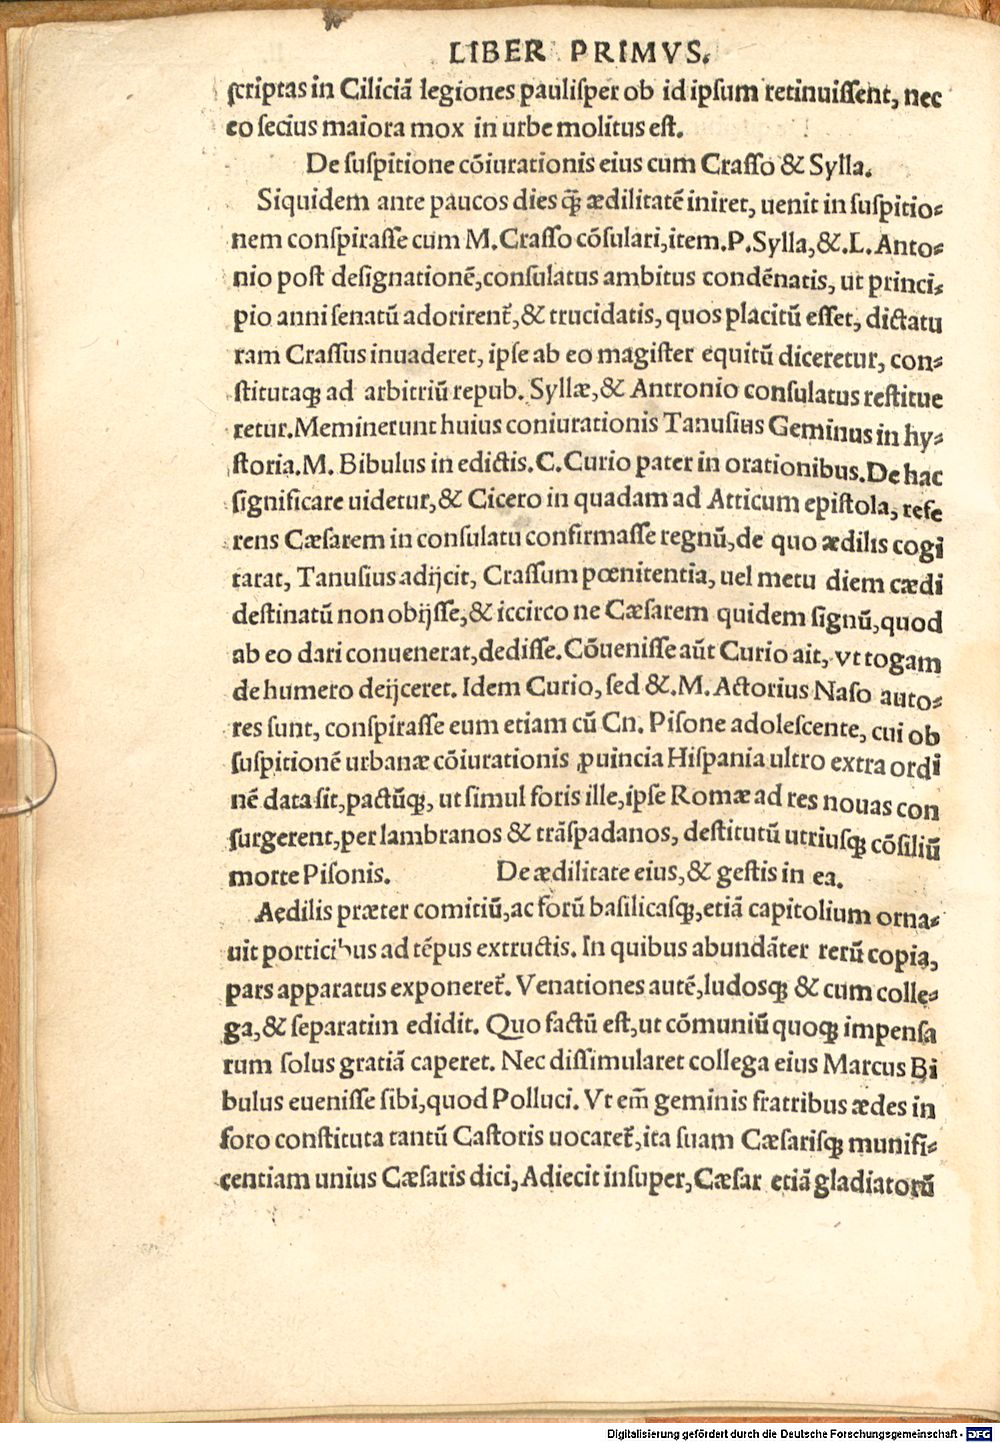 LIBER PRIMVS.
scriptas in Ciliciā legiones paulisper ob id ipsum retinuissent, nec
eo secius maiora mox in urbe molitus est.
De suspitione cōiurationis eius cum Crasso & Sylla.
Siquidem ante paucos dies q̄ȝ ædilitatē iniret, uenit in suspitio-
nem conspirasse cum M. Crasso cōsulari, item. P. Sylla, &. L. Anto-
nio post designationē, consulatus ambitus condēnatis, ut princi-
pio anni senatū adorirent᷑, & trucidatis, quos placitū esset, dictatu
ram Crassus inuaderet, ipse ab eo magister equitū diceretur, con-
stitutaqȝ ad arbitriū repub. Syllæ, & Antronio consulatus restitue
retur. Meminerunt huius coniurationis Tanusius Geminus in hy-
storia. M. Bibulus in edictis. C. Curio pater in orationibus. De hac
significare uidetur, & Cicero in quadam ad Atticum epistola, refe
rens Cæsarem in consulatu confirmasse regnū, de quo ædilis cogi
tarat, Tanusius adijcit, Crassum pœnitentia, uel metu diem cædi
destinatū non obijsse, & iccirco ne Cæsarem quidem signū, quod
ab eo dari conuenerat, dedisse. Cōuenisse aūt Curio ait, vt togam
de humero deijceret. Idem Curio, sed &. M. Actorius Naso auto-
res sunt, conspirasse eum etiam cū Cn. Pisone adolescente, cui ob
suspitionē urbanæ cōiurationis ꝓuincia Hispania ultro extra ordi
nē data sit, pactūqȝ, ut simul foris ille, ipse Romæ ad res nouas con
surgerent, per lambranos & trāspadanos, destitutū utriusqȝ cōsiliū
morte Pisonis. De ædilitate eius, & gestis in ea.
Aedilis præter comitiū, ac forū basilicasqȝ, etiā capitolium orna-
uit porticibus ad tēpus extructis. In quibus abundāter rerū copia,
pars apparatus exponeret᷑. Venationes autē, ludosqȝ & cum colle-
ga, & separatim edidit. Quo factū est, ut cōmuniū quoqȝ impensa
rum solus gratiā caperet. Nec dissimularet collega eius Marcus Bi
bulus euenisse sibi, quod Polluci. Vt em̄ geminis fratribus ædes in
foro constituta tantū Castoris uocaret᷑, ita suam Cæsarisqȝ munifi-
centiam unius Cæsaris dici, Adiecit insuper, Cæsar etiā gladiatorū
Digitalisierung gefördert durch die Deutsche Forschungsgemeinschaft - DFG